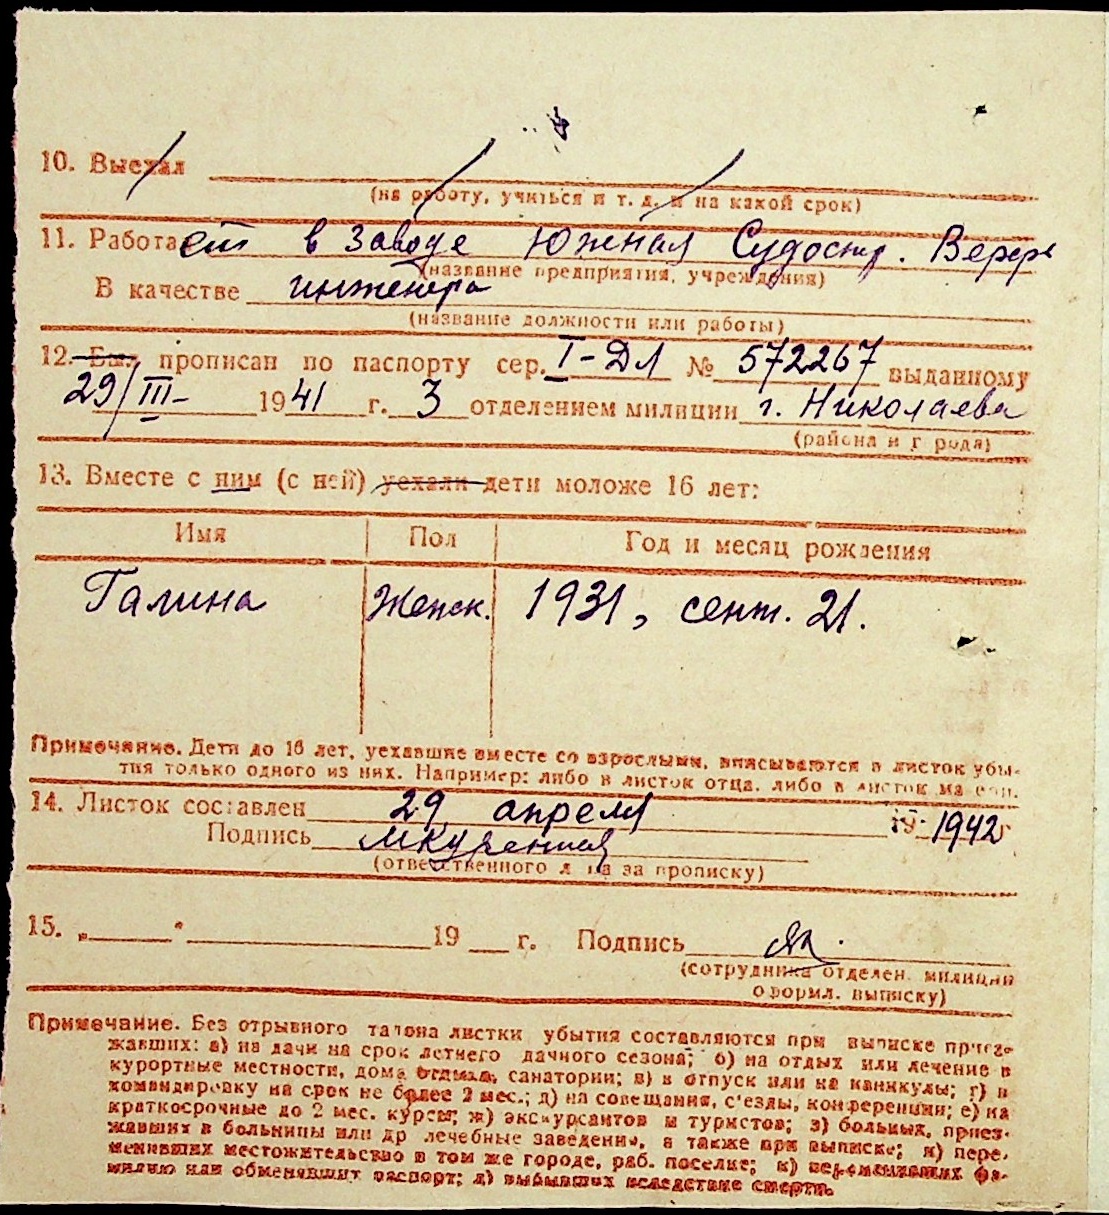 10. Выехал
(на работу, учиться и т. д. и на какой срок)
11. Работает в заводе Южная Судостр. Верфь
(название предприятия, учреждения)
В качестве инженера
(название должности или работы)
12. Был прописан по паспорту сер. I-ДЛ № 572267 выданному
29/III- 1941 г. 3 отделением милиции г. Николаева
(района и города)
13. Вместе с ним (с ней) уехали дети моложе 16 лет:
Имя Пол Год и месяц рождения
Галина Женск. 1931, сент. 21.
Примечание. Дети до 16 лет, уехавшие вместе со взрослыми, вписываются в листок убы-
тия только одного из них. Например: либо в листок отца, либо в листок матери.
14. Листок составлен 29 апреля 19 1942 г
Подпись
(ответственного лица за прописку)
15. „ " 19 г. Подпись
(сотрудника отделен. милиции
оформл. выписку)
Примечание. Без отрывного талона листки убытия составляются при выписке приез-
жавших: а) на дачи на срок летнего дачного сезона; б) на отдых или лечение в
курортные местности, дома отдыха, санатории; в) в отпуск или на каникулы; г) в
командировку на срок не более 2 мес.; д) на совещания, с'езды, конференции; е) на
краткосрочные до 2 мес. курсы; ж) экскурсантов и туристов; з) больных, приез-
жавших в больницы или др лечебные заведения, а также при выписке; и) пере-
менивших местожительство в том же городе, раб. поселке; к) переменивших фа-
милию или обменявших паспорт; л) выбывших вследствие смерти.